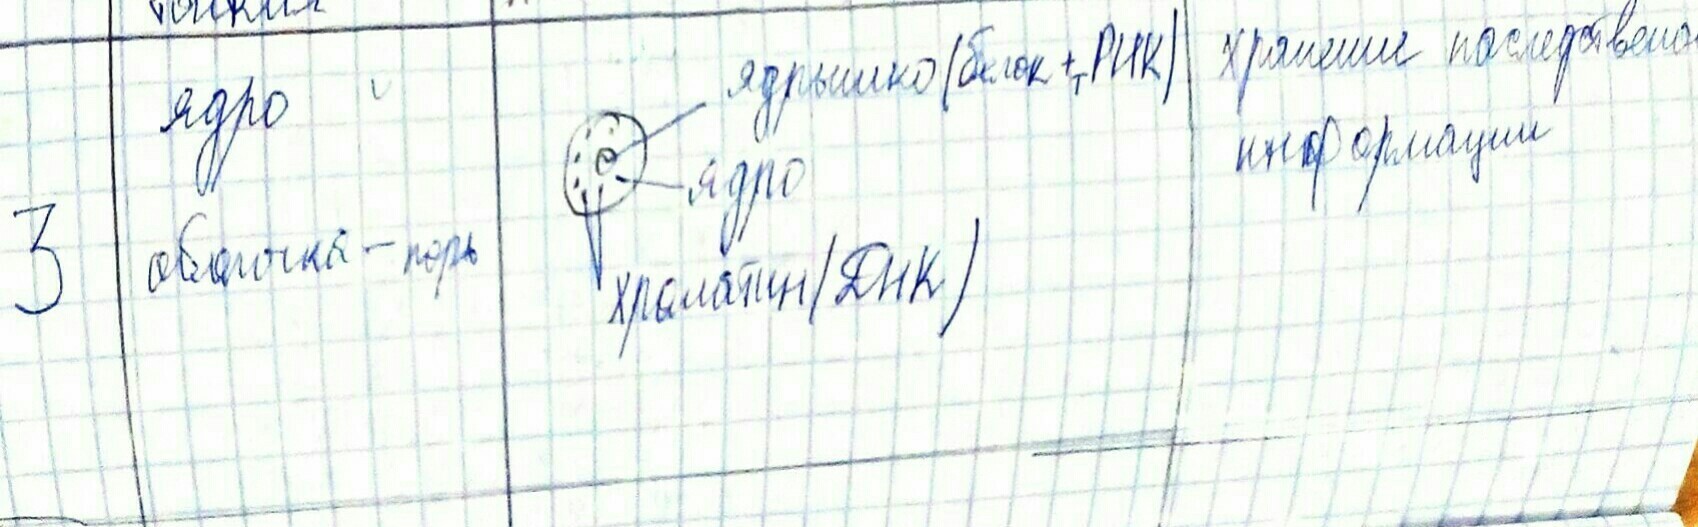 ядро
3
оболочка – поры
ядрышко (белок + тРНК)
ядро
хроматин (ДНК)
хранение последствено
информации